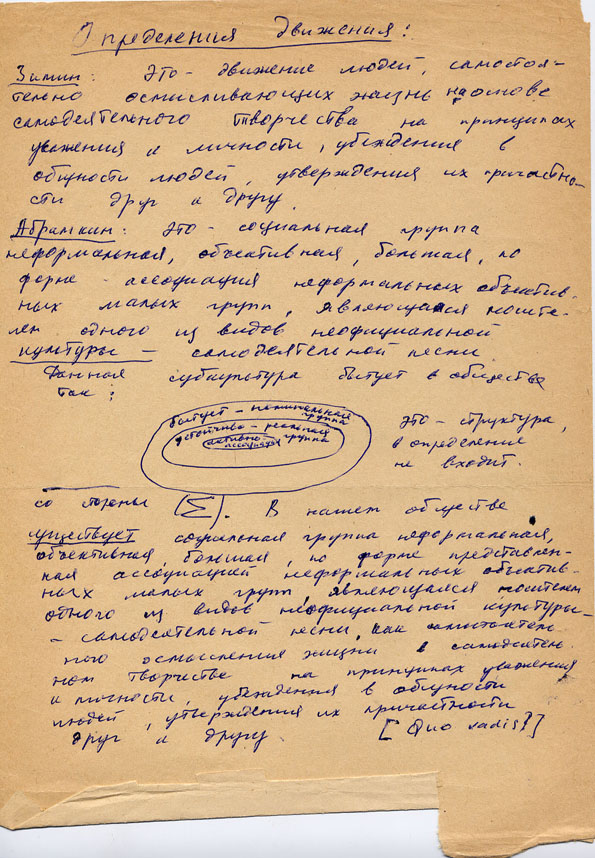 Определения движения:
Зимин: Это - движение людей, самостоя-
тельно осмысливающих жизнь на основе
самодеятельного творчества на принципах
уважения к личности, убеждения в
общности людей, утверждения их причастно-
сти друг к другу
Абрамкин: Это - социальная группа
неформальная, объективная, большая, по
форме - ассоциация неформальных объектив-
ных малых групп, являющаяся носите-
лем одного из видов неофициальной
культуры - самодеятельной песни.
Данная субкультура бытует в обществе
так:
бытует - номинальная
группа
устойчиво - реальная
группа
активно -
ассоциация
Это - структура,
в определение
не входит.
со стороны (Σ). В нашем обществе
существует социальная группа неформальная,
объективная, большая, по форме представлен-
ная ассоциацией неформальных объектив-
ных малых групп, являющаяся носителем
одного из видов неофициальной культуры -
- самодеятельной песни, как самостоятель
ного осмысления жизни в самодеятель
ном творчестве на принципах уважения
к личности, убеждения в общности
людей, утверждения их причастности
друг к другу [Quo vadis?]